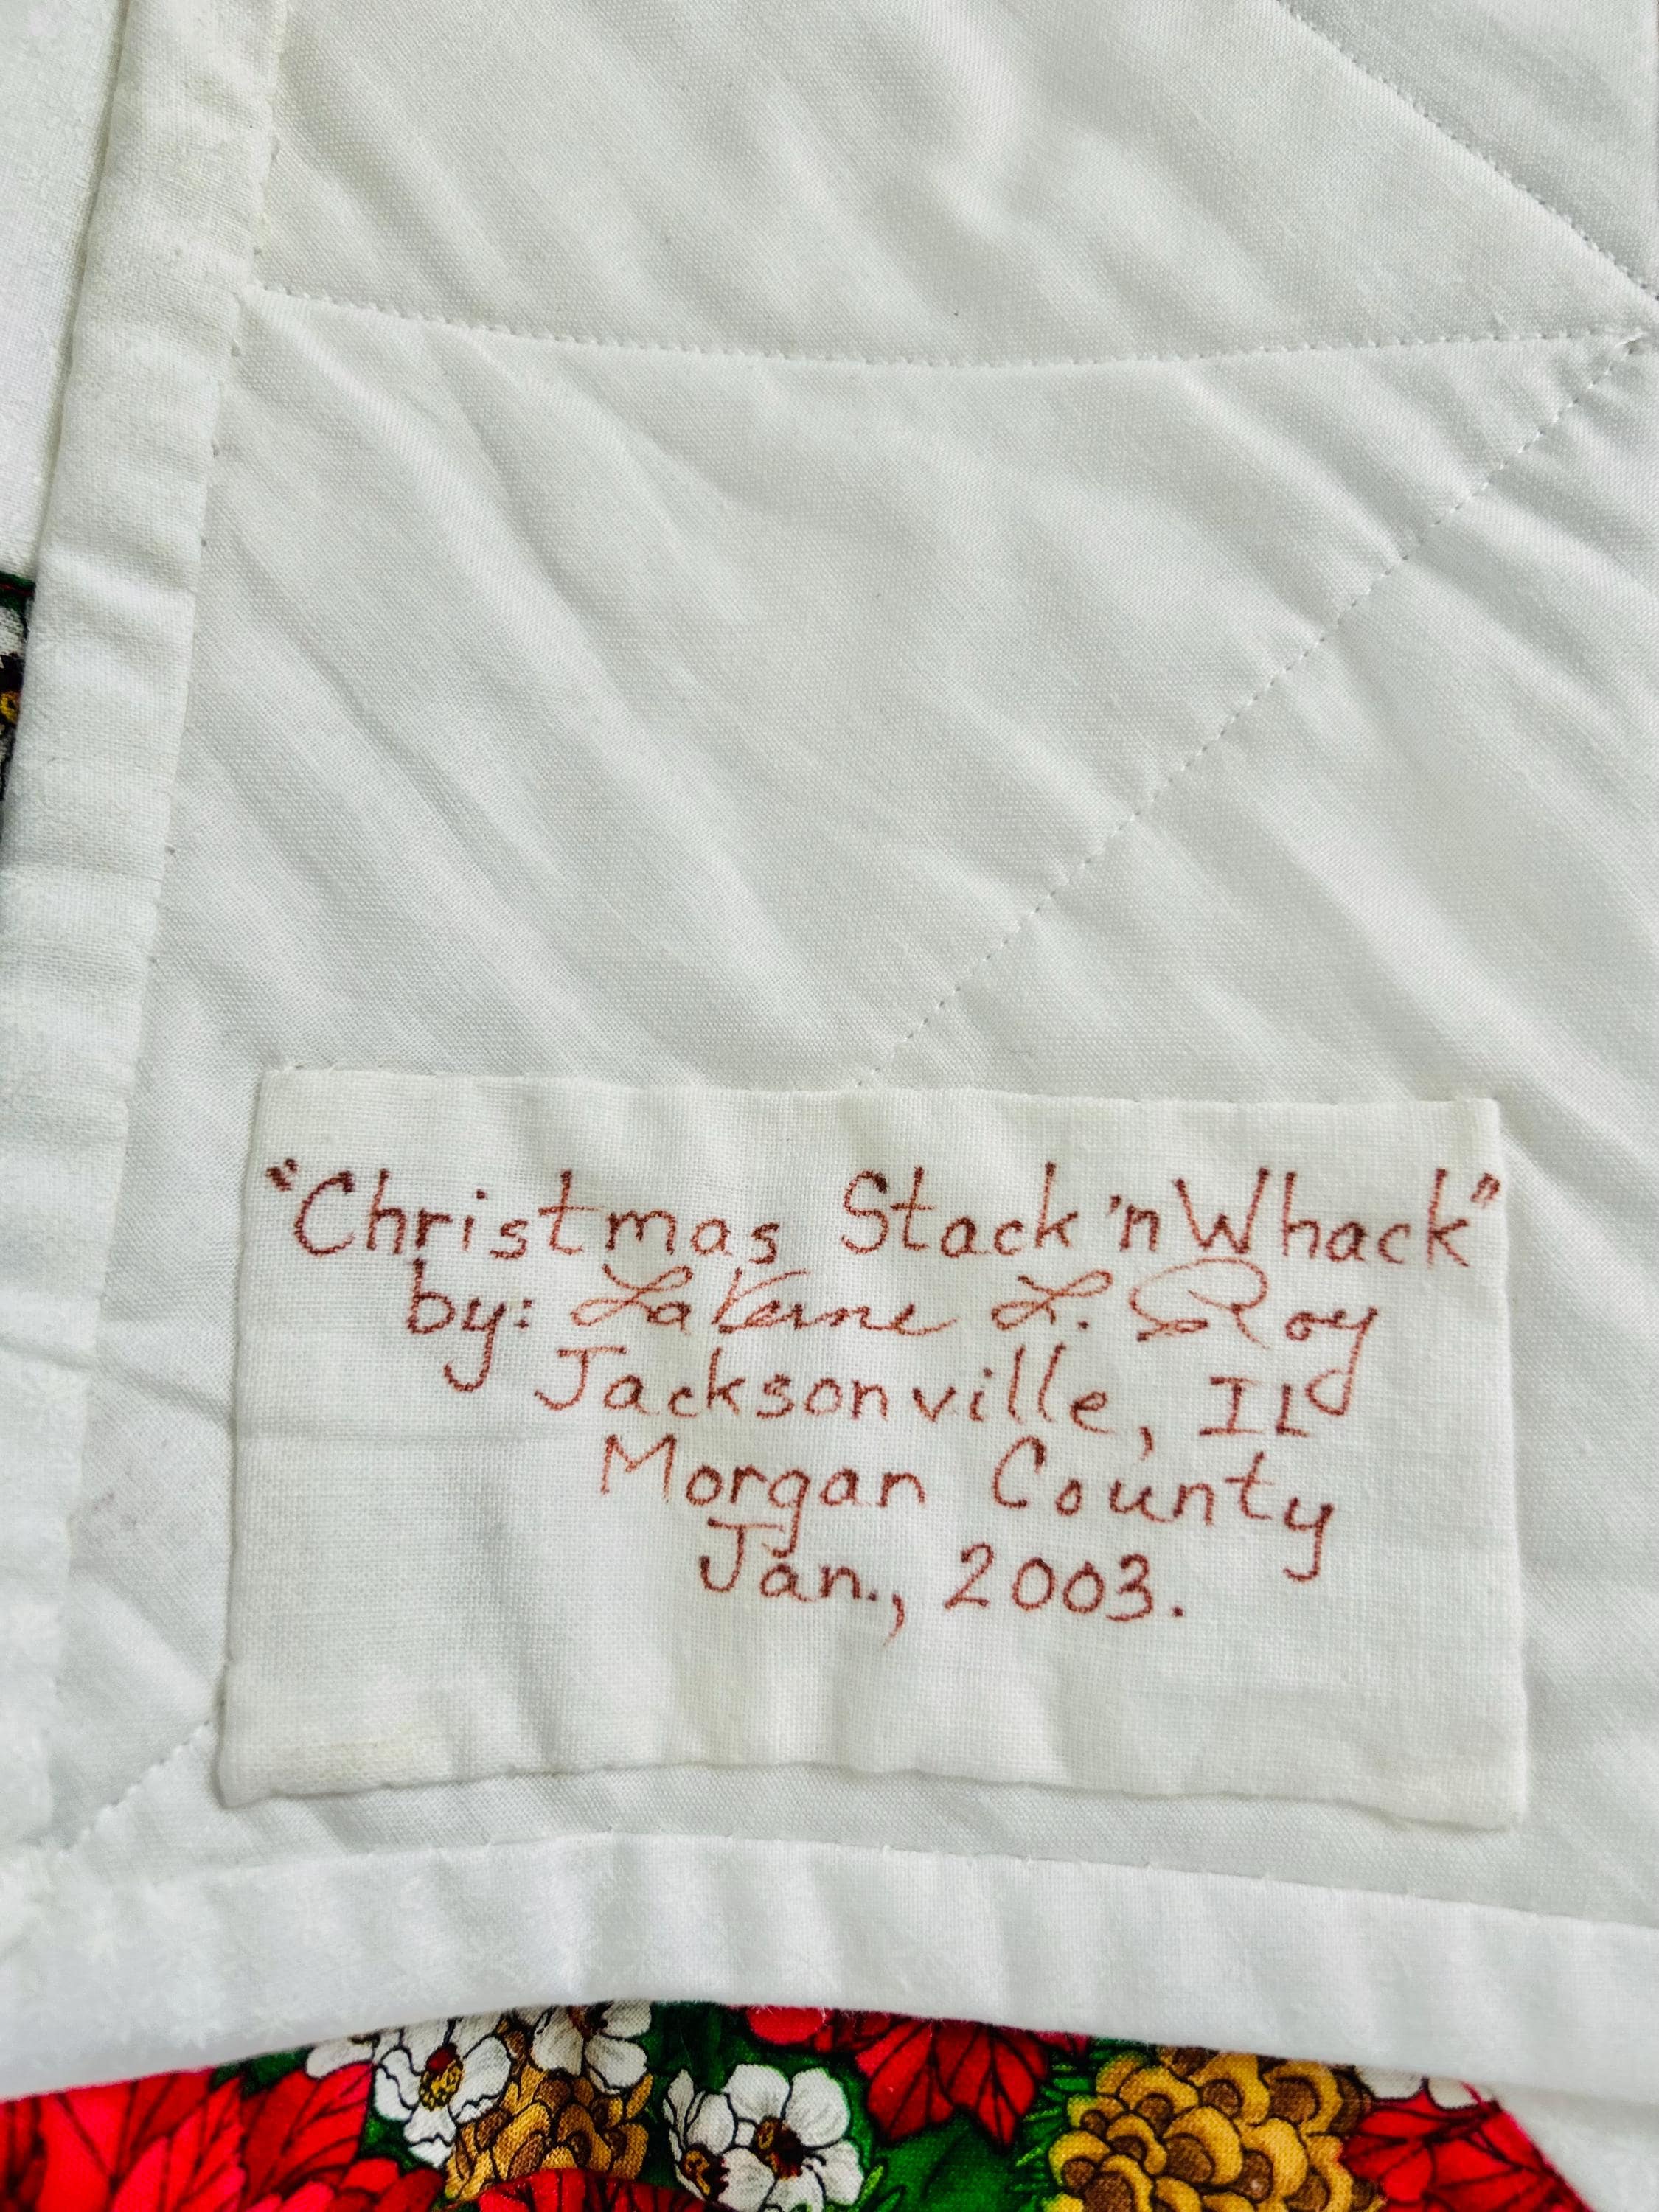 "Christmas Stack 'n Whack"
by: LaVerne L. Roy
Jacksonville, IL
Morgan County
Jan., 2003.